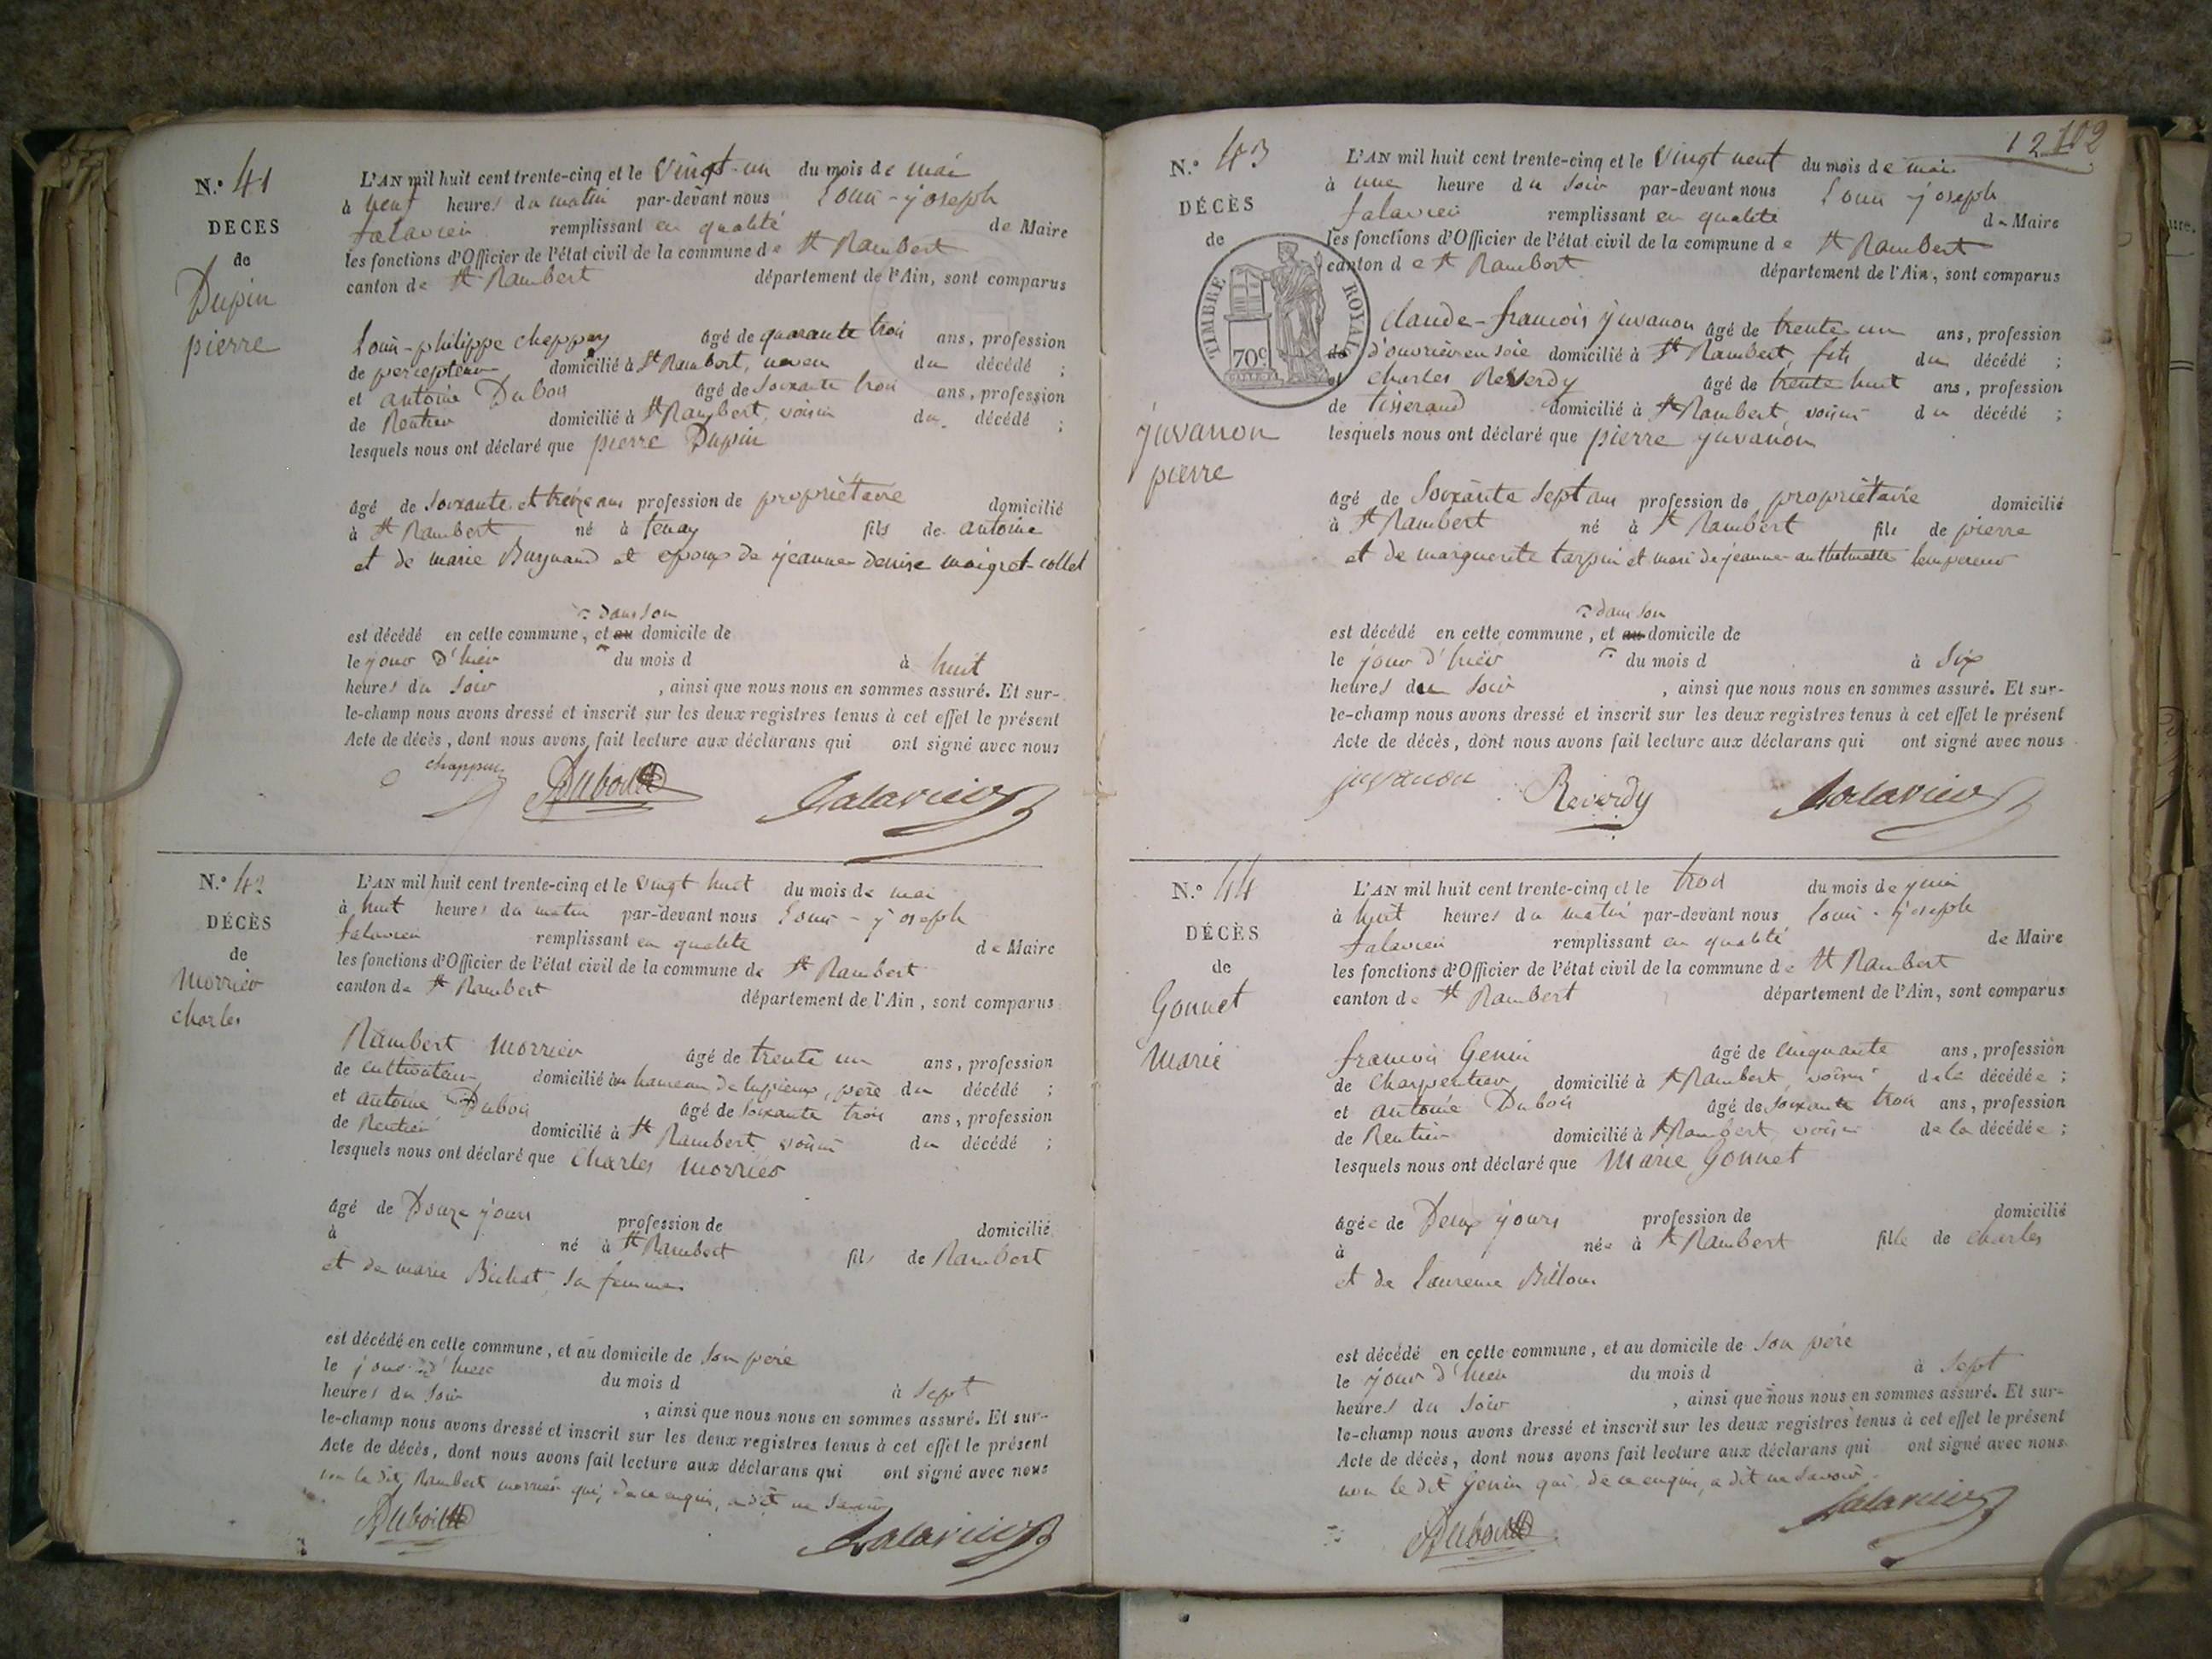 N.º 41
DECES
de
Dupin
pierre
L'AN mil huit cent trente-cinq et le Vingt-un du mois de mai
à neuf heures du matin par-devant nous Louis-joseph
falavier remplissant en qualité de Maire
les fonctions d'Officier de l'état civil de la commune de St Rambert
canton de St Rambert département de l'Ain, sont comparus
Louis-philippe chappuy âgé de quarante trois ans, profession
de percepteur domicilié à St Rambert, neveu du décédé ;
et antoine Dubois âgé de Soixante trois ans, profession
de Rentier domicilié à St Rambert, voisin du décédé ;
lesquels nous ont déclaré que pierre Dupin
âgé de Soixante et treize ans profession de propriétaire domicilié
à St Rambert né à tenay fils de antoine
et de marie Buynand et epoux de jeanne denise maigret-collet
dans son
est décédé en cette commune, et au domicile de
le jour d'hier du mois d à huit
heures du Soir , ainsi que nous nous en sommes assuré. Et sur-
le-champ nous avons dressé et inscrit sur les deux registres tenus à cet effet le présent
Acte de décès, dont nous avons fait lecture aux déclarans qui ont signé avec nous
chappuy Dubois falavier
N.º 42
DÉCÈS
de
Morrier
charles
L'AN mil huit cent trente-cinq et le Vingt huit du mois de mai
à huit heures du matin par-devant nous Louis-joseph
falavier remplissant en qualité de Maire
les fonctions d'Officier de l'état civil de la commune de St Rambert
canton de St Rambert département de l'Ain, sont comparus
Rambert Morrier âgé de trente un ans, profession
de cultivateur domicilié au hameau de lupieux, père du décédé ;
et antoine Dubois âgé de Soixante trois ans, profession
de Rentier domicilié à St Rambert voisin du décédé ;
lesquels nous ont déclaré que Charles Morrier
âgé de Douze jours profession de domicilié
à né à St Rambert fils de Rambert
et de marie Bichat sa femme
est décédé en cette commune, et au domicile de son père
le jour d'hier du mois d à sept
heures du Soir , ainsi que nous nous en sommes assuré. Et sur-
le-champ nous avons dressé et inscrit sur les deux registres tenus à cet effet le présent
Acte de décès, dont nous avons fait lecture aux déclarans qui ont signé avec nous
non le dit Rambert morrier qui, de ce enquis, a dit ne savoir
Dubois falavier
12 102
N.º 43
DÉCÈS
de
juvanon
pierre
TIMBRE ROYAL
70c
L'AN mil huit cent trente-cinq et le Vingt neuf du mois de mai
à une heure du soir par-devant nous Louis joseph
falavier remplissant en qualité de Maire
les fonctions d'Officier de l'état civil de la commune de St Rambert
canton de St Rambert département de l'Ain, sont comparus
claude-francois juvanon âgé de trente un ans, profession
de d'ouvrier en soie domicilié à St Rambert fils du décédé ;
et charles Reverdy âgé de trente huit ans, profession
de tisserand domicilié à St Rambert voisin du décédé ;
lesquels nous ont déclaré que pierre juvanon
âgé de Soixante Sept ans profession de propriétaire domicilié
à St Rambert né à St Rambert fils de pierre
et de marguerite tarpin et mari de jeanne-anthelmette lempereur
dans son
est décédé en cette commune, et au domicile de
le jour d'hier du mois d à Six
heures du soir , ainsi que nous nous en sommes assuré. Et sur-
le-champ nous avons dressé et inscrit sur les deux registres tenus à cet effet le présent
Acte de décès, dont nous avons fait lecture aux déclarans qui ont signé avec nous
juvanon Reverdy falavier
N.º 44
DÉCÈS
de
Gonnet
Marie
L'AN mil huit cent trente-cinq et le trois du mois de juin
à huit heures du matin par-devant nous Louis-joseph
falavier remplissant en qualité de Maire
les fonctions d'Officier de l'état civil de la commune de St Rambert
canton de St Rambert département de l'Ain, sont comparus
francois Genin âgé de cinquante ans, profession
de charpentier domicilié à St Rambert, voisin de la décédée ;
et antoine Dubois âgé de soixante trois ans, profession
de Rentier domicilié à St Rambert, voisin de la décédée ;
lesquels nous ont déclaré que Marie Gonnet
âgée de Deux jours profession de domicilié
à née à St Rambert fille de charles
et de Laurence Billon
est décédé en cette commune, et au domicile de son père
le jour d'hier du mois d à sept
heures du soir , ainsi que nous nous en sommes assuré. Et sur-
le-champ nous avons dressé et inscrit sur les deux registres tenus à cet effet le présent
Acte de décès, dont nous avons fait lecture aux déclarans qui ont signé avec nous
non le dit Genin qui de ce enquis, a dit ne savoir
Dubois falavier